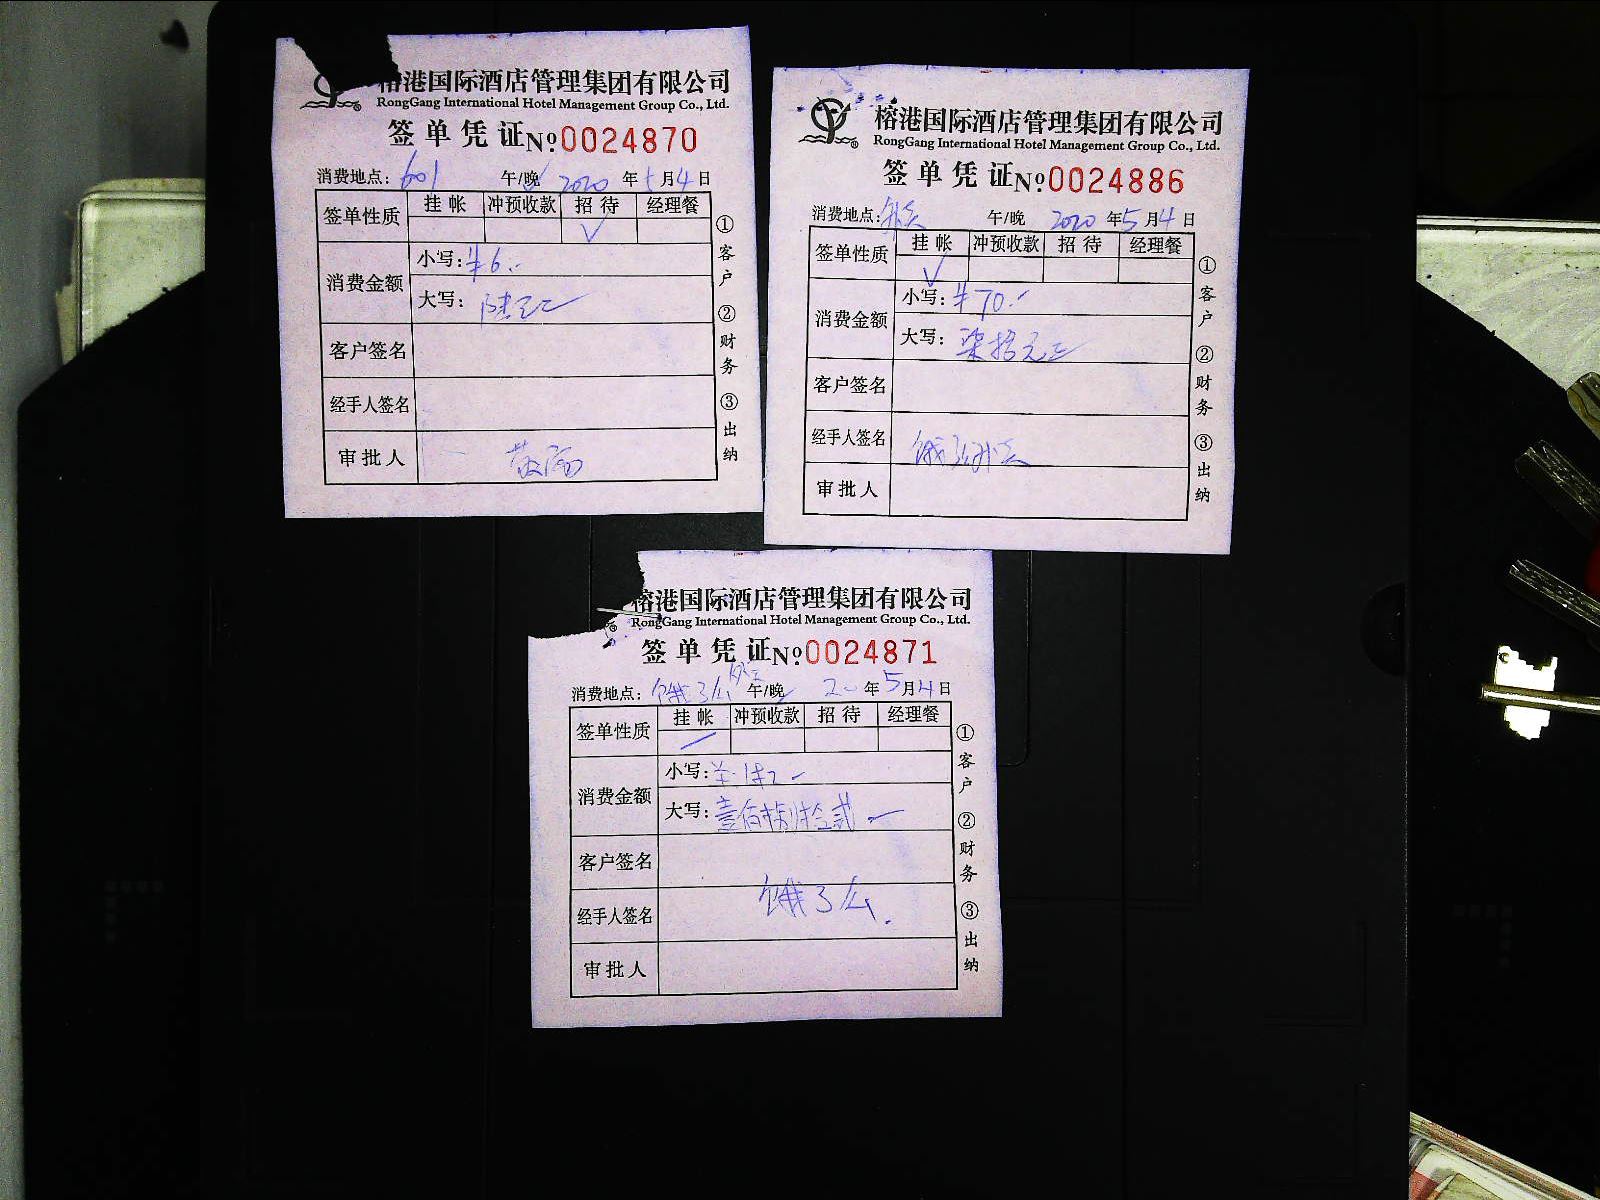 榕港国际酒店管理集团有限公司
RongGang International Hotel Management Group Co., Ltd.
签单凭证 Nº 0024870
消费地点: 601 午/晚 2020 年 5 月 4 日
签单性质 挂帐 冲预收款 招待 经理餐
√
消费金额
小写: ¥6.-
大写: 陆元正
客户签名
经手人签名
审批人
①客户 ②财务 ③出纳
榕港国际酒店管理集团有限公司
RongGang International Hotel Management Group Co., Ltd.
签单凭证 Nº 0024886
消费地点: 外卖 午/晚 2020 年 5 月 4 日
签单性质 挂帐 冲预收款 招待 经理餐
√
消费金额
小写: ¥70.-
大写: 柒拾元正
客户签名
经手人签名 饿了么外卖
审批人
①客户 ②财务 ③出纳
榕港国际酒店管理集团有限公司
RongGang International Hotel Management Group Co., Ltd.
签单凭证 Nº 0024871
消费地点: 饿了么 午/晚 20 年 5 月 4 日
签单性质 挂帐 冲预收款 招待 经理餐
消费金额
小写:
大写: 壹佰捌拾贰
客户签名
经手人签名 饿了么.
审批人
①客户 ②财务 ③出纳